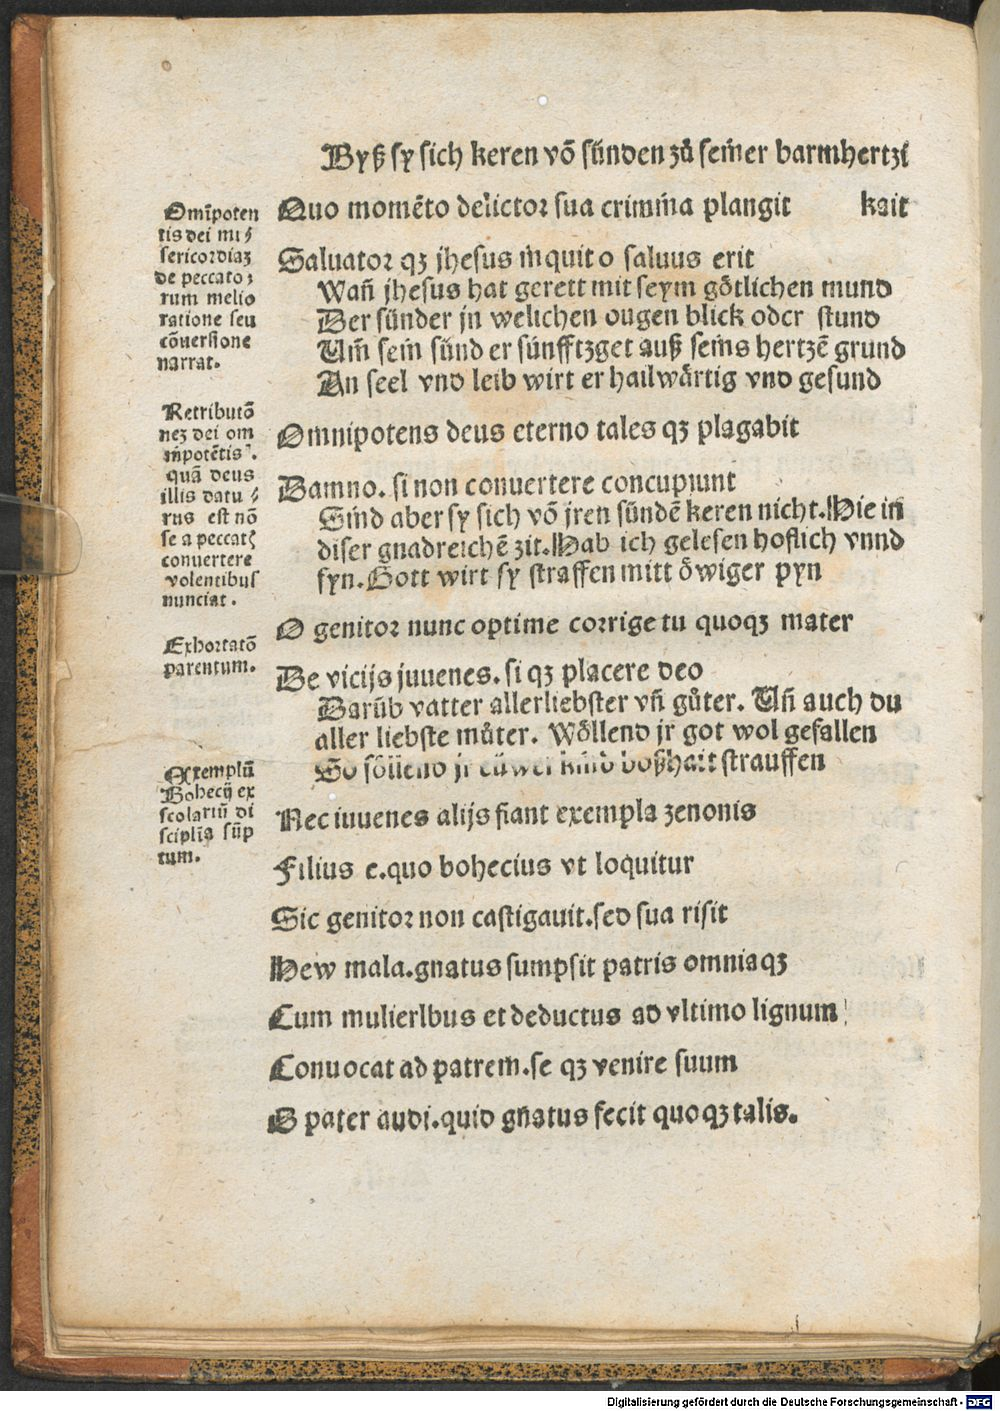 Byß sy sich keren vō sünden zů seiner barmhertzi
Quo momēto delictor sua crimina plangit kait
Saluator qz jhesus inquit o saluus erit
Wañ jhesus hat gerett mit seym götlichen mund
Der sünder jn welichen ougen blick oder stund
Um̄ sein sünd er sünfftzget auß seins hertzē grund
An seel vnd leib wirt er hailwärtig vnd gesund
Omnipotens deus eterno tales qz plagabit
Damno. si non conuertere concupiunt
Sind aber sy sich vō jren sündē keren nicht. Hie in
diser gnadreichē zit. Hab ich gelesen hoflich vnnd
fyn. Gott wirt sy straffen mitt öwiger pyn
O genitor nunc optime corrige tu quoqz mater
De vicijs juuenes. si qz placere deo
Darüb vatter allerliebster vñ gůter. Uñ auch du
aller liebste můter. Wöllend jr got wol gefallen
So söllend jr eüwer kind boßhait strauffen
Nec iuuenes alijs fiant exempla zenonis
Filius e. quo bohecius vt loquitur
Sic genitor non castigauit. sed sua risit
Hew mala. gnatus sumpsit patris omniaqz
Cum mulierlbus et deductus ad vltimo lignum
Conuocat ad patrem. se qz venire suum
O pater audi. quid gñatus fecit quoqz talis.
Omīpoten
tis dei mi⸗
sericordiaz
de peccato⸗
rum melio
ratione seu
cōuersione
narrat.
Retributō
nez dei om
īpotētis.
quā deus
illis datu⸗
rus est nō
se a peccatꝭ
conuertere
volentibus
nunciat.
Exhortatō
parentum.
Exemplū
Bohecij ex
scolariū di
sciplīa sūp
tum.
Digitalisierung gefördert durch die Deutsche Forschungsgemeinschaft - DFG